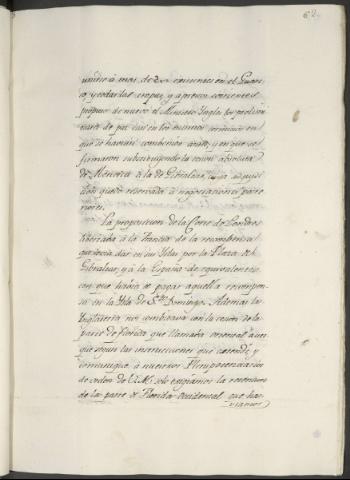 62.
unirse à mas de 20 existentes en el Guari-
co, y todas las tropas, y aprestos corrientes
propuso de nuevo el Ministerio Yngles los prelimi-
nares de paz casi en los mismos terminos en
que se havian combenido antes, y en que se
firmaron substituyendo la cesion absoluta
de Menorca à la de Gibraltar, cuya adquisi-
cion quedó reservada à negociaciones poste-
riores.
La proposicion de la Corte de Londres
libertaba à la Francia de la recompensa
que debia dar en sus Yslas por la Plaza de
Gibraltar, y à la España de equivalente
con que habia de pagar aquella recompen-
sa en la Ysla de Sto. Domingo. Ademas la
Ynglaterra nos combidaba con la cesion de la
parte de Florida que llamaba oriental aun
que segun las instrucciones que extendi, y
comuniqué à nuestros Plenipotenciarios
de orden de V.M. solo exigiamos la retencion
de la parte de Florida Occidental que ha-
viamos